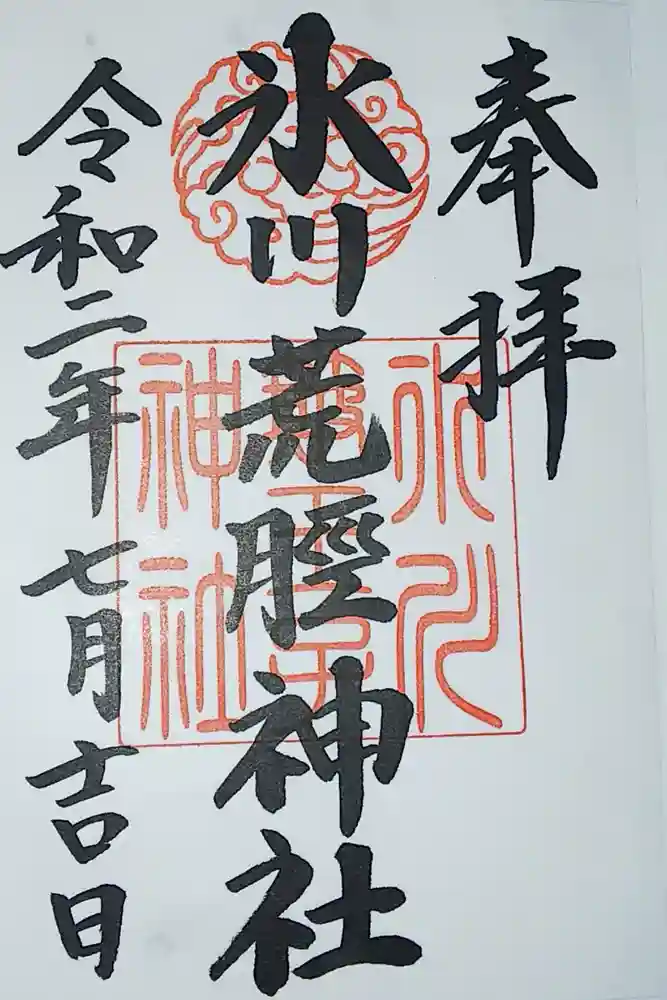 奉拝
氷川荒脛神社
令和二年七月吉日
神社